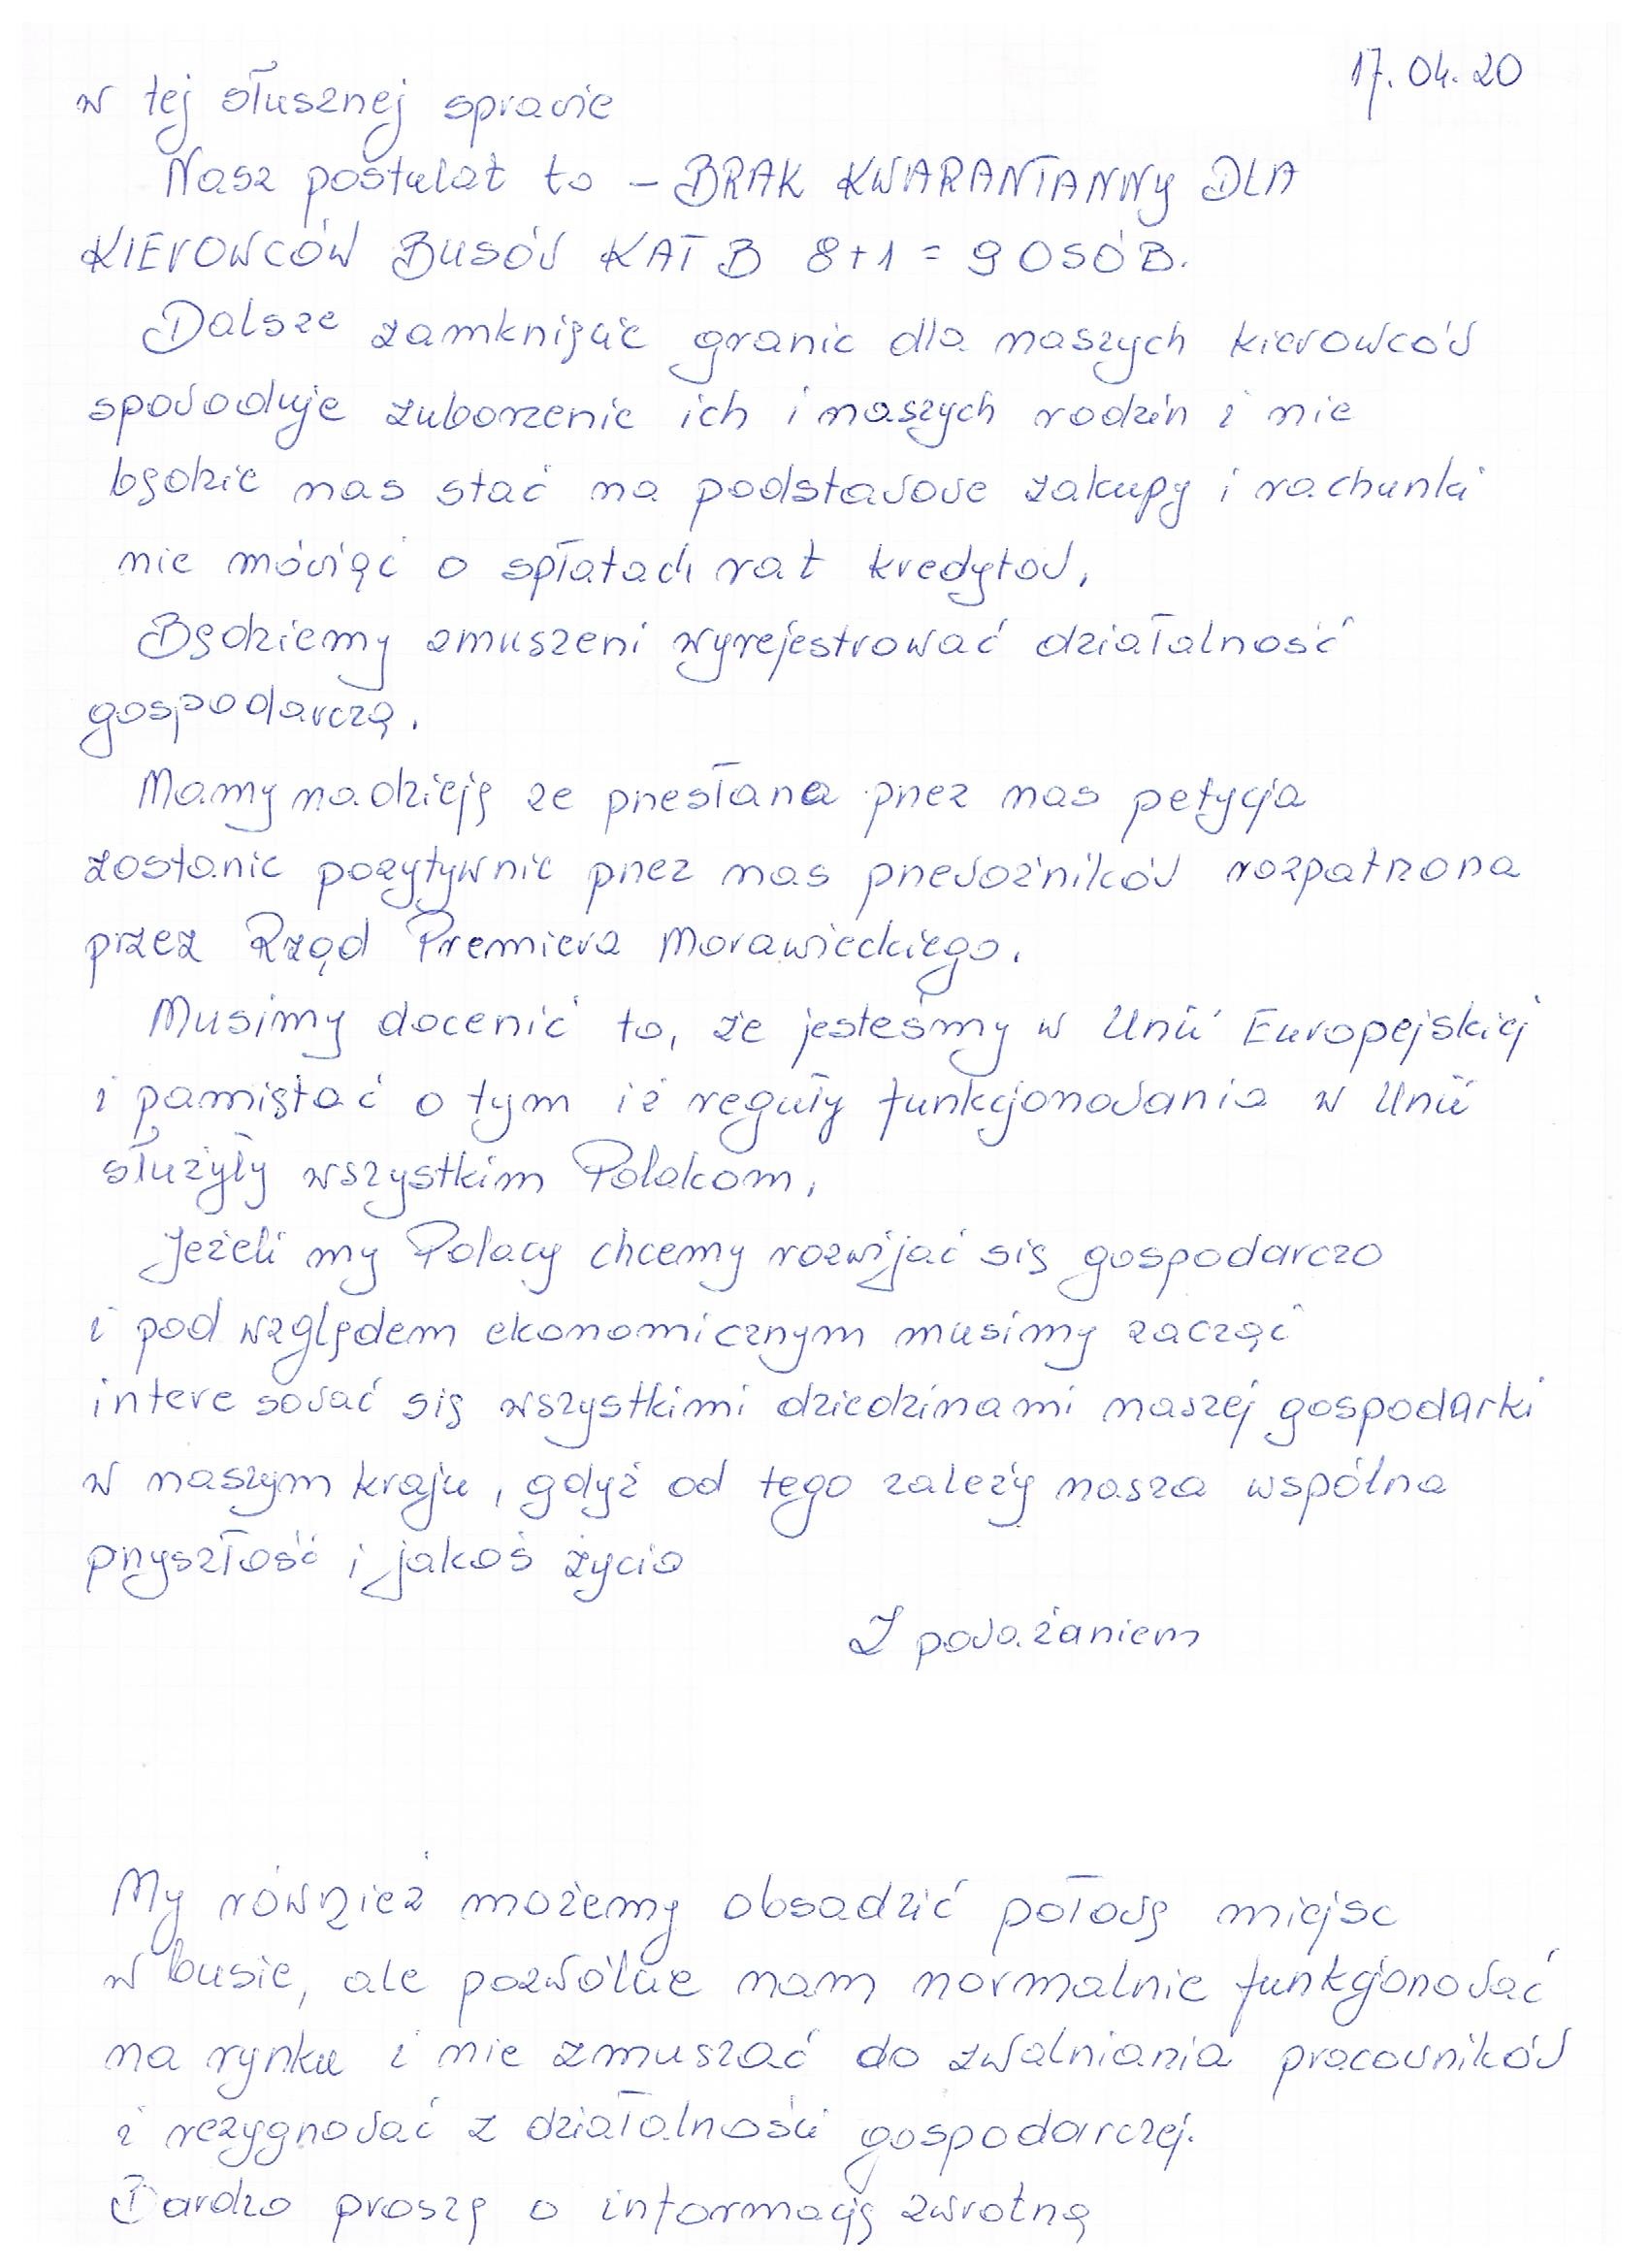 17.04.20
w tej słusznej sprawie
Nasz postulat to – BRAK KWARANTANNY DLA
KIEROWCÓW BUSÓW KAT B 8+1 = 9 OSÓB.
Dalsze zamknięcie granic dla naszych kierowców
spowoduje zuborzenie ich i naszych rodzin i nie
będzie nas stać na podstawowe zakupy i rachunki
nie mówiąć o spłatach rat kredytow.
Będziemy zmuszeni wyrejestrować działalność
gospodarczą.
Mamy nadzieję ze przesłana przez nas petycja
zostanie pozytywnie przez nas przewoźników rozpatrzona
przez Rząd Premiera Morawieckiego.
Musimy docenić to, że jesteśmy w Unii Europejskiej
i pamiętać o tym iż reguły funkcjonowania w Unii
służyły wszystkim Polakom.
Jeżeli my Polacy chcemy rozwijać się gospodarczo
i pod względem ekonomicznym musimy zacząć
interesować się wszystkimi dziedzinami naszej gospodarki
w naszym kraju, gdyż od tego zależy nasza wspólna
przyszłość i jakoś życia
Z poważaniem
My również możemy obsadzić połowę miejsc
w busie, ale pozwólcie nam normalnie funkcjonować
na rynku i nie zmuszać do zwalniania pracowników
i rezygnować z działalności gospodarczej.
Bardzo proszę o informację zwrotną